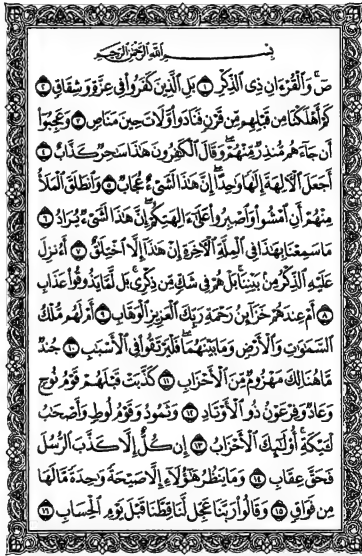 بِسْمِ ٱللَّهِ ٱلرَّحْمَٰنِ ٱلرَّحِيمِ
صٓ ۚ وَٱلْقُرْءَانِ ذِى ٱلذِّكْرِ ١ بَلِ ٱلَّذِينَ كَفَرُوا۟ فِى عِزَّةٍ وَشِقَاقٍ ٢
كَمْ أَهْلَكْنَا مِن قَبْلِهِم مِّن قَرْنٍ فَنَادَوا۟ وَّلَاتَ حِينَ مَنَاصٍ ٣ وَعَجِبُوٓا۟
أَن جَآءَهُم مُّنذِرٌ مِّنْهُمْ ۖ وَقَالَ ٱلْكَٰفِرُونَ هَٰذَا سَٰحِرٌ كَذَّابٌ ٤
أَجَعَلَ ٱلْـَٔالِهَةَ إِلَٰهًا وَٰحِدًا ۖ إِنَّ هَٰذَا لَشَىْءٌ عُجَابٌ ٥ وَٱنطَلَقَ ٱلْمَلَأُ
مِنْهُمْ أَنِ ٱمْشُوا۟ وَٱصْبِرُوا۟ عَلَىٰٓ ءَالِهَتِكُمْ ۖ إِنَّ هَٰذَا لَشَىْءٌ يُرَادُ ٦
مَا سَمِعْنَا بِهَٰذَا فِى ٱلْمِلَّةِ ٱلْـَٔاخِرَةِ إِنْ هَٰذَآ إِلَّا ٱخْتِلَٰقٌ ٧ أَءُنزِلَ
عَلَيْهِ ٱلذِّكْرُ مِنۢ بَيْنِنَا ۚ بَلْ هُمْ فِى شَكٍّ مِّن ذِكْرِى ۖ بَل لَّمَّا يَذُوقُوا۟ عَذَابِ
٨ أَمْ عِندَهُمْ خَزَآئِنُ رَحْمَةِ رَبِّكَ ٱلْعَزِيزِ ٱلْوَهَّابِ ٩ أَمْ لَهُم مُّلْكُ
ٱلسَّمَٰوَٰتِ وَٱلْأَرْضِ وَمَا بَيْنَهُمَا ۖ فَلْيَرْتَقُوا۟ فِى ٱلْأَسْبَٰبِ ١٠ جُندٌ
مَّا هُنَالِكَ مَهْزُومٌ مِّنَ ٱلْأَحْزَابِ ١١ كَذَّبَتْ قَبْلَهُمْ قَوْمُ نُوحٍ
وَعَادٌ وَفِرْعَوْنُ ذُو ٱلْأَوْتَادِ ١٢ وَثَمُودُ وَقَوْمُ لُوطٍ وَأَصْحَٰبُ
لْـَٔيْكَةِ ۚ أُو۟لَٰٓئِكَ ٱلْأَحْزَابُ ١٣ إِن كُلٌّ إِلَّا كَذَّبَ ٱلرُّسُلَ
فَحَقَّ عِقَابِ ١٤ وَمَا يَنظُرُ هَٰٓؤُلَآءِ إِلَّا صَيْحَةً وَٰحِدَةً مَّا لَهَا
مِن فَوَاقٍ ١٥ وَقَالُوا۟ رَبَّنَا عَجِّل لَّنَا قِطَّنَا قَبْلَ يَوْمِ ٱلْحِسَابِ ١٦